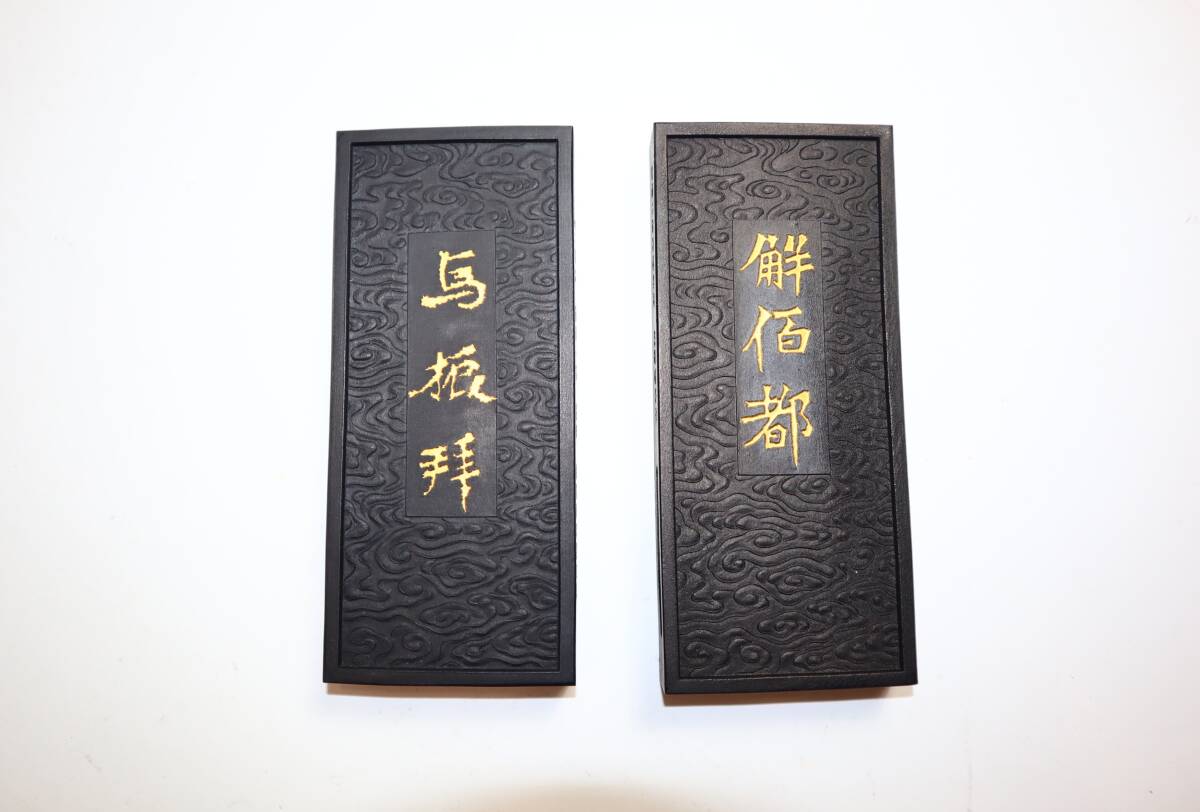 马振拜
觧佰都